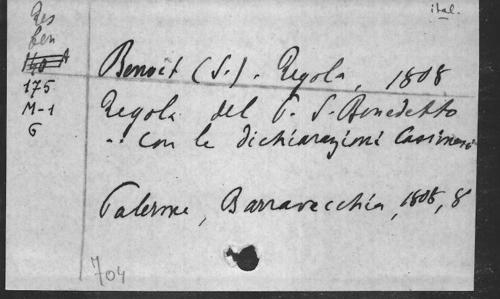 ital.
Res
ben
175
M-1
G
Benoit (S.). Regola, 1808
Regola del P. S. Benedetto
.. con le dichiarazioni Casinesi
Palerme, Barravecchia, 1808, 8
704